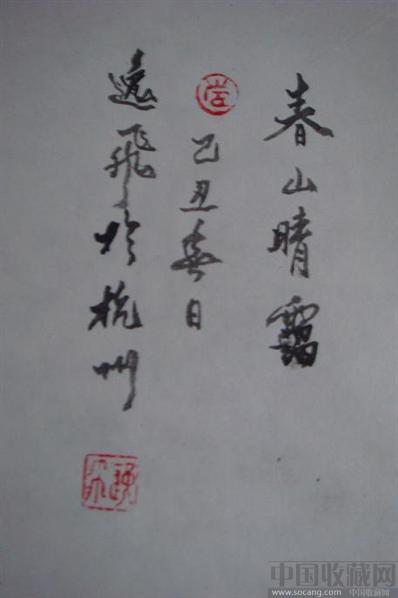 春山晴靄
己丑春日
逸飛於杭州
中国收藏网
www.socang.com 中国收藏网